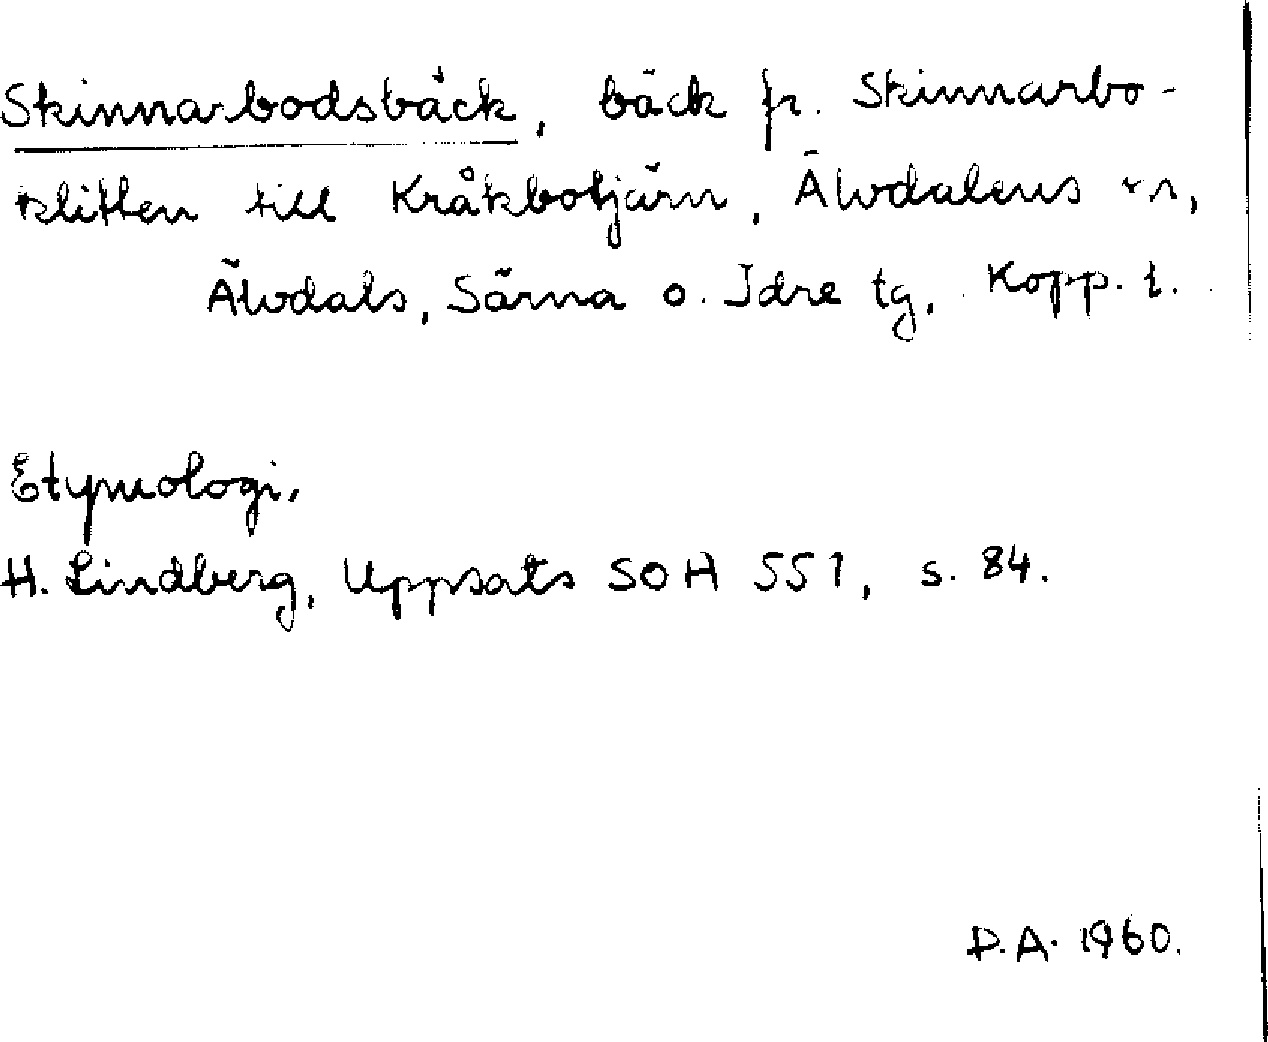 Skinnarbodsbäck, bäck fr. Skinnarbo-
klitten till Kråkbotjärn, Älvdalens sn,
Älvdals, Särna o. Idre tg, Kopp. l.
Etymologi.
H. Lindberg, Uppsats SOH 551, s. 84.
D.A. 1960.